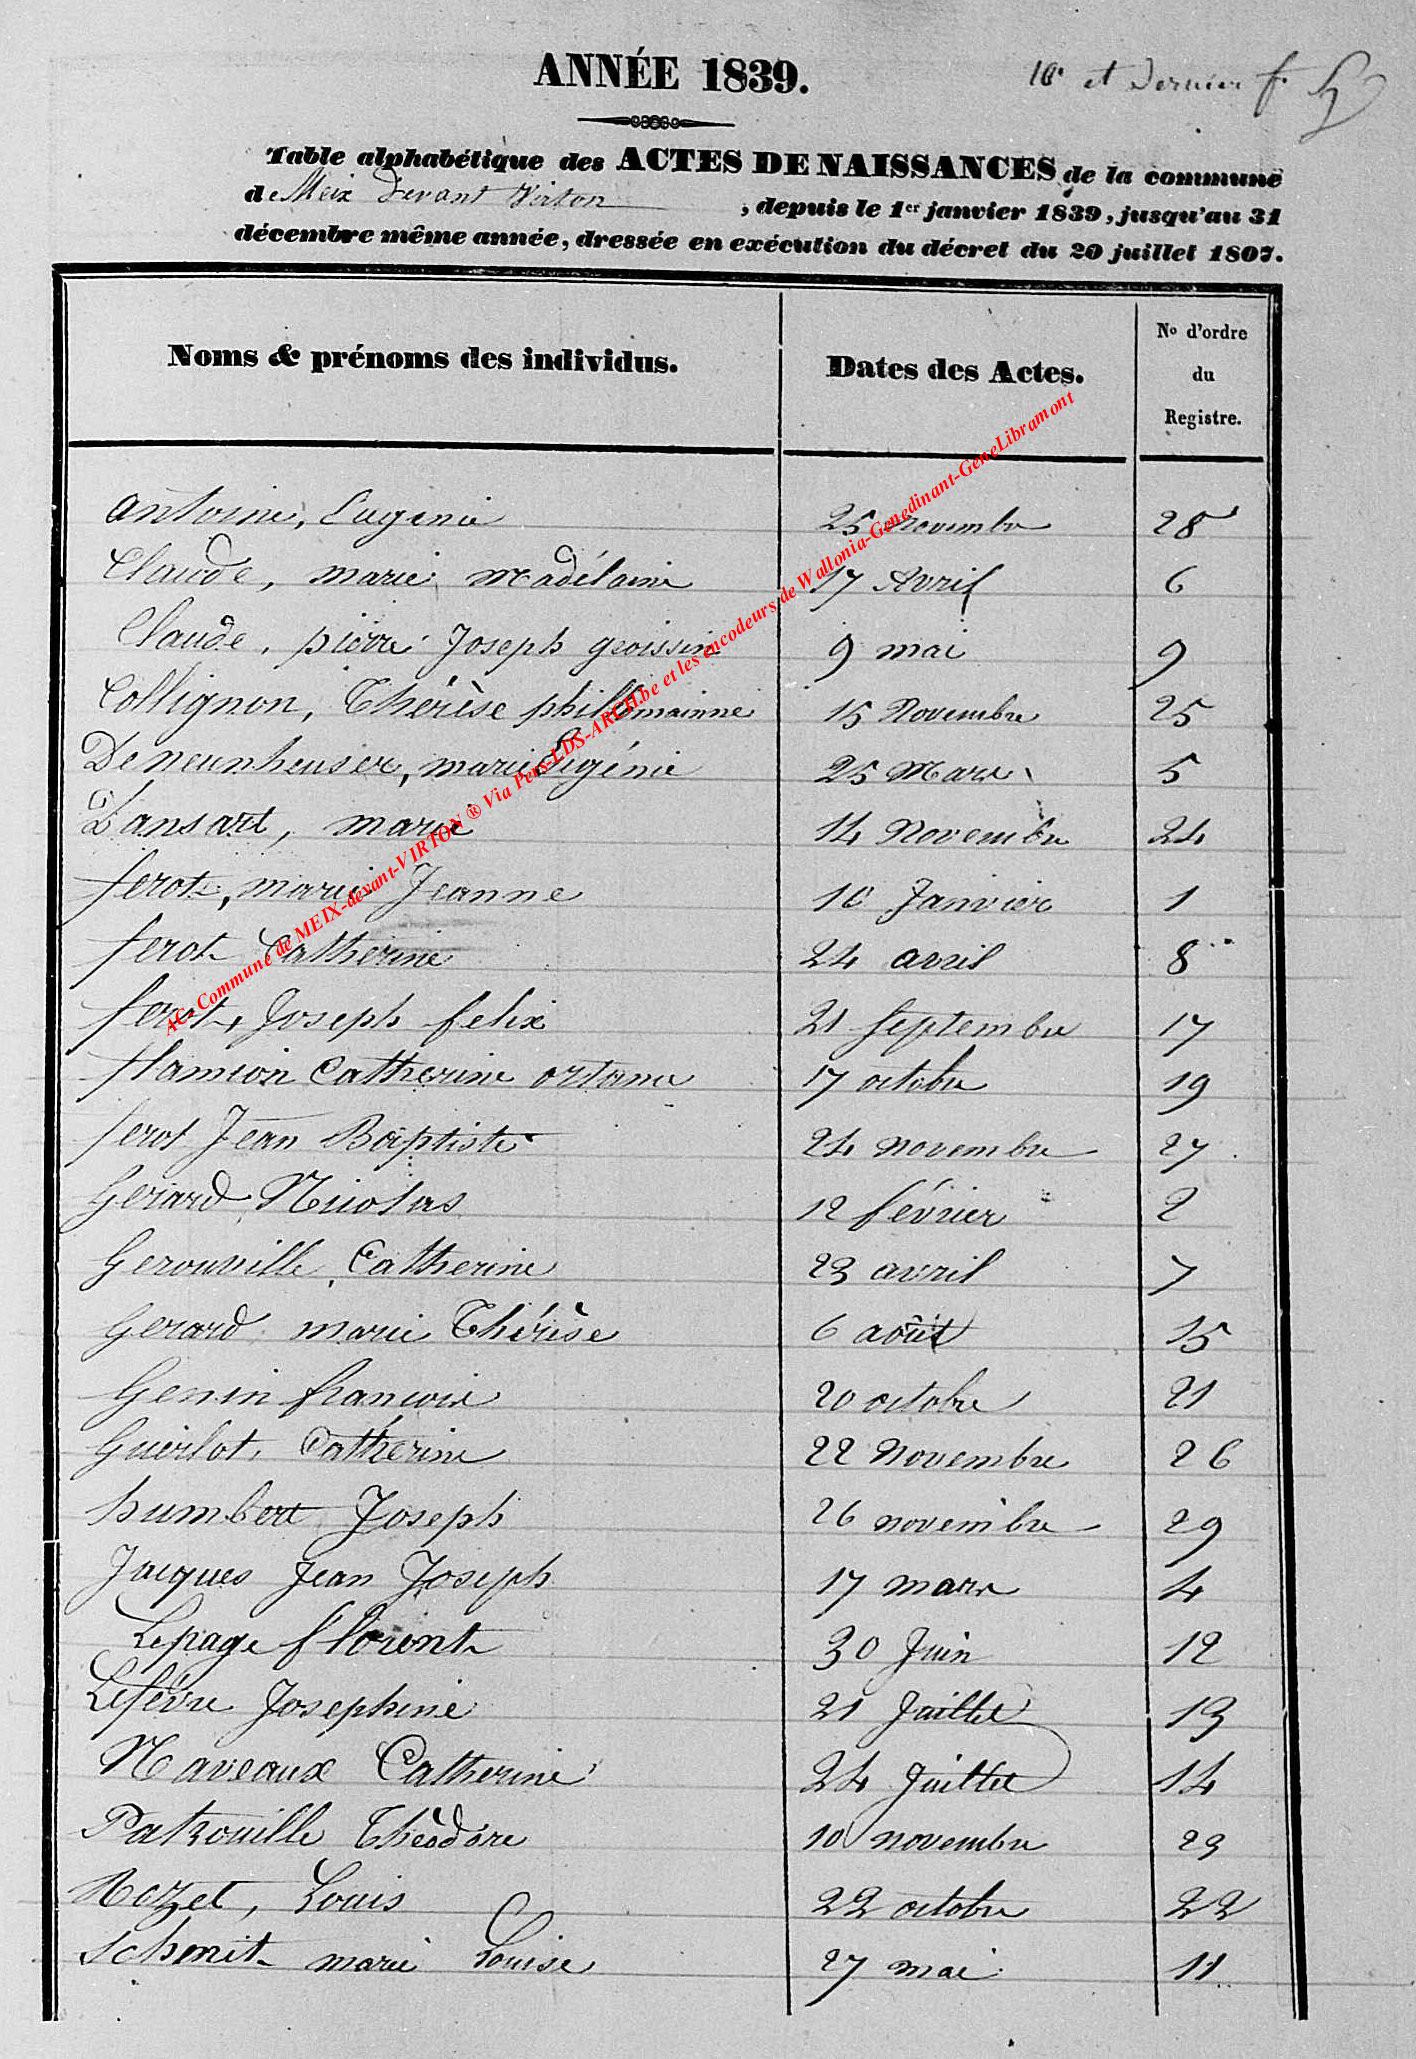 ANNÉE 1839.
10e et Dernier f.
Table alphabétique des ACTES DE NAISSANCES de la commune
de Meix Devant Virton , depuis le 1er janvier 1839, jusqu'au 31
décembre même année, dressée en exécution du décret du 20 juillet 1807.
Noms & prénoms des individus. Dates des Actes. No d'ordre du Registre.
Antoine, Eugenie 25 Novembre 28
Claude, marie Madélaine 17 Avril 6
Claude, pierre Joseph 9 mai 9
Collignon, Thérèse philomainne 15 Novembre 25
Deneunheuser, marie Eugénie 25 Mars 5
Dansart, marie 14 Novembre 24
ferot, marie Jeanne 10 Janvier 1
ferot Catherine 24 avril 8
ferot, Joseph felix 21 Septembre 17
flamion Catherine 17 octobre 19
ferot Jean Baptiste 24 novembre 27
Gerard, Nicolas 12 février 2
Gerouville, Catherine 23 avril 7
Gerard marie Thérèse 6 août 15
Genin francois 20 octobre 21
Guerlot, Catherine 22 Novembre 26
humbert Joseph 26 novembre 29
Jacques Jean Joseph 17 mars 4
Lepage florent 30 Juin 12
Lefevre Josephine 21 Juillet 13
Naveaux Catherine 24 Juillet 14
Patrouille Théodore 10 novembre 23
Rozet, Louis 22 octobre 22
Schmit marie Louise 27 mai 11
AC. Commune de MEIX-devant-VIRTON ® Via Pers-LDS-ARCH.be et les encodeurs de Wallonia-Genedinant-GeneLibramont